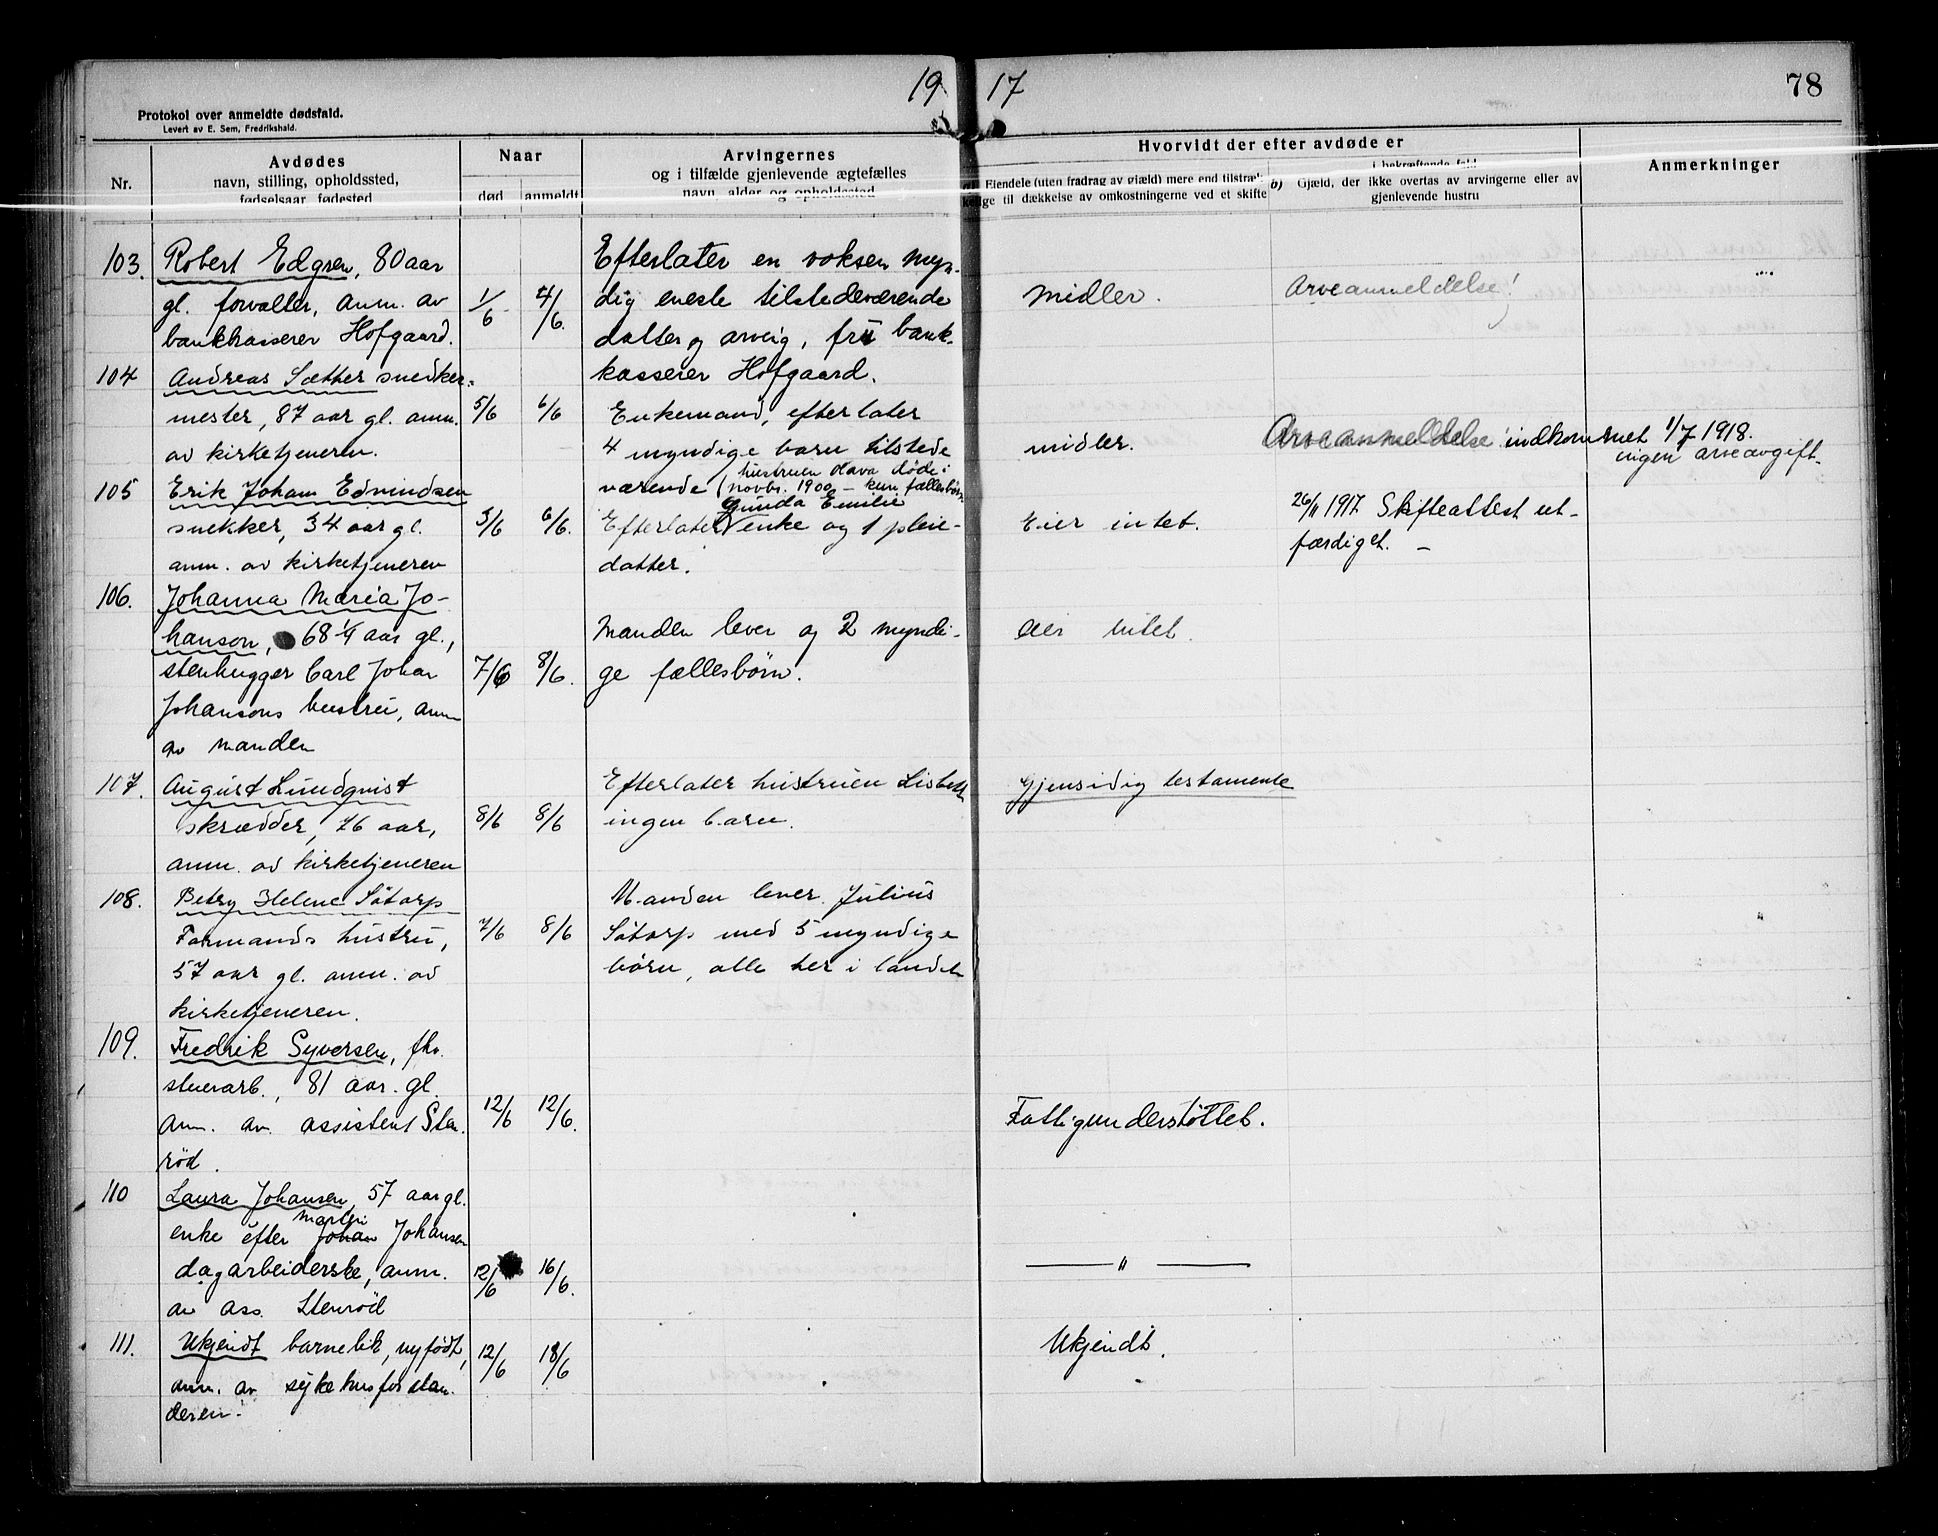 1917
78
Protokol over anmeldte dødsfald.
Levert av E. Sem, Fredrikshald.
Nr.
Avdødes
navn, stilling, opholdssted,
fødselsaar, fødested
Naar
død
anmeldt
Arvingernes
og i tilfælde gjenlevende ægtefælles
navn, alder og opholdssted
Hvorvidt der efter avdøde er
Eiendele (uten fradrag av gjæld) mere end tilstræk-
kelige til dækkelse av omkostningerne ved et skifte
i bekræftende fald
b) Gjæld, der ikke overtas av arvingerne eller av
gjenlevende hustru
Anmerkninger
103.
Robert Edgren, 80 aar
gl. forvalter, anm. av
bankkasserer Hofgaard.
1/6
4/6.
Efterlater en voksen myn-
dig eneste tilstedeværende
datter og arving, fru bank-
kasserer Hofgaard.
midler.
Arveanmeldelse!
104
Andreas Sæther snedker-
mester, 87 aar gl. anm.
av kirketjeneren.
5/6
6/6
Enkemand, efterlater
4 myndige barn tilstede
værende (hustruen Olava døde i
novbr. 1900 – kun fællesbørn
midler.
Arveanmeldelse indkommet 1/7 1918.
ingen arveavgift.
105
Erik Johan Edvindsen
snekker, 34 aar gl.
anm. av kirketjeneren
3/6
6/6.
Gunda Emilie
Efterlater enke og 1 pleie-
datter.
Eier intet.
26/11 1917. Skifteattest ut-
færdiget. –
106.
Johanna Maria Jo-
hanson, 68 1/4 aar gl.,
stenhugger Carl Johan
Johansons hustru, anm
av manden
7/6
8/6.
Manden lever og 2 myndi-
ge fællesbörn.
eier intet.
107.
August Lundqvist
skrædder, 76 aar,
anm. av kirketjeneren
8/6
8/6
Efterlater hustruen Lisbeth
ingen barn.
Gjensidig testamente
108.
Betzy Helene Såtorp
Formands hustru,
57 aar gl. anm. av
kirketjeneren.
7/6
8/6
Manden lever Julius
Såtorp med 5 myndige
børn, alle her i landet
109.
Fredrik Syversen, fhv.
stuerarb., 81 aar. gl.
Anm. av assistent Sten-
rød.
12/6
12/6.
Fattigunderstöttet.
110
Laura Johansen, 57 aar gl.
enke efter Johan Martin Johansen
dagarbeiderske, anm.
av ass. Stenröd
12/6
16/6.
— " —
111.
Ukjendt barnelik, nyfødt,
anm. av sykehusforstan-
deren.
12/6
18/6
Ukjendt.